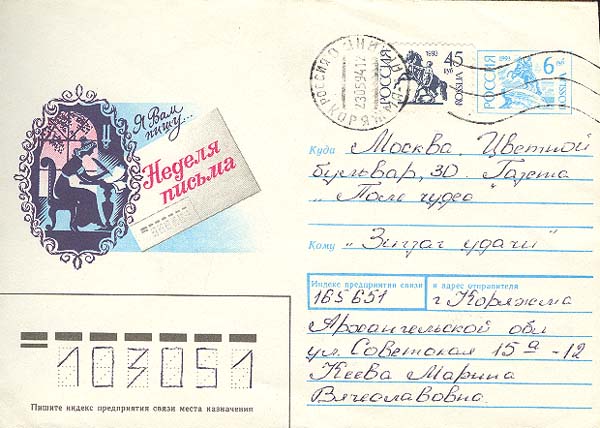 Я Вам пишу...
Неделя письма
РОССИЯ
1992
45 руб
ROSSIJA
РОССИЯ
1993
6 руб
ROSSIJA
РОССИЯ
230594
КОРЯЖМА
Куда Москва. Цветной
бульвар, 30. Газета
"Поле чудес"
Кому "Зигзаг удачи"
Индекс предприятия связи и адрес отправителя
165651 г Коряжма
Архангельской обл
ул. Советская 15а-12
Кеева Марина
Вячеславовна.
103051
Пишите индекс предприятия связи места назначения